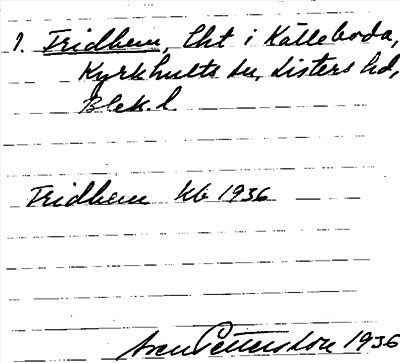 1. Fridhem, Lht i Källeboda,
Kyrkhults sn, Listers hd,
Blek. l.
Fridhem kb 1936
Sven Pettersson 1936